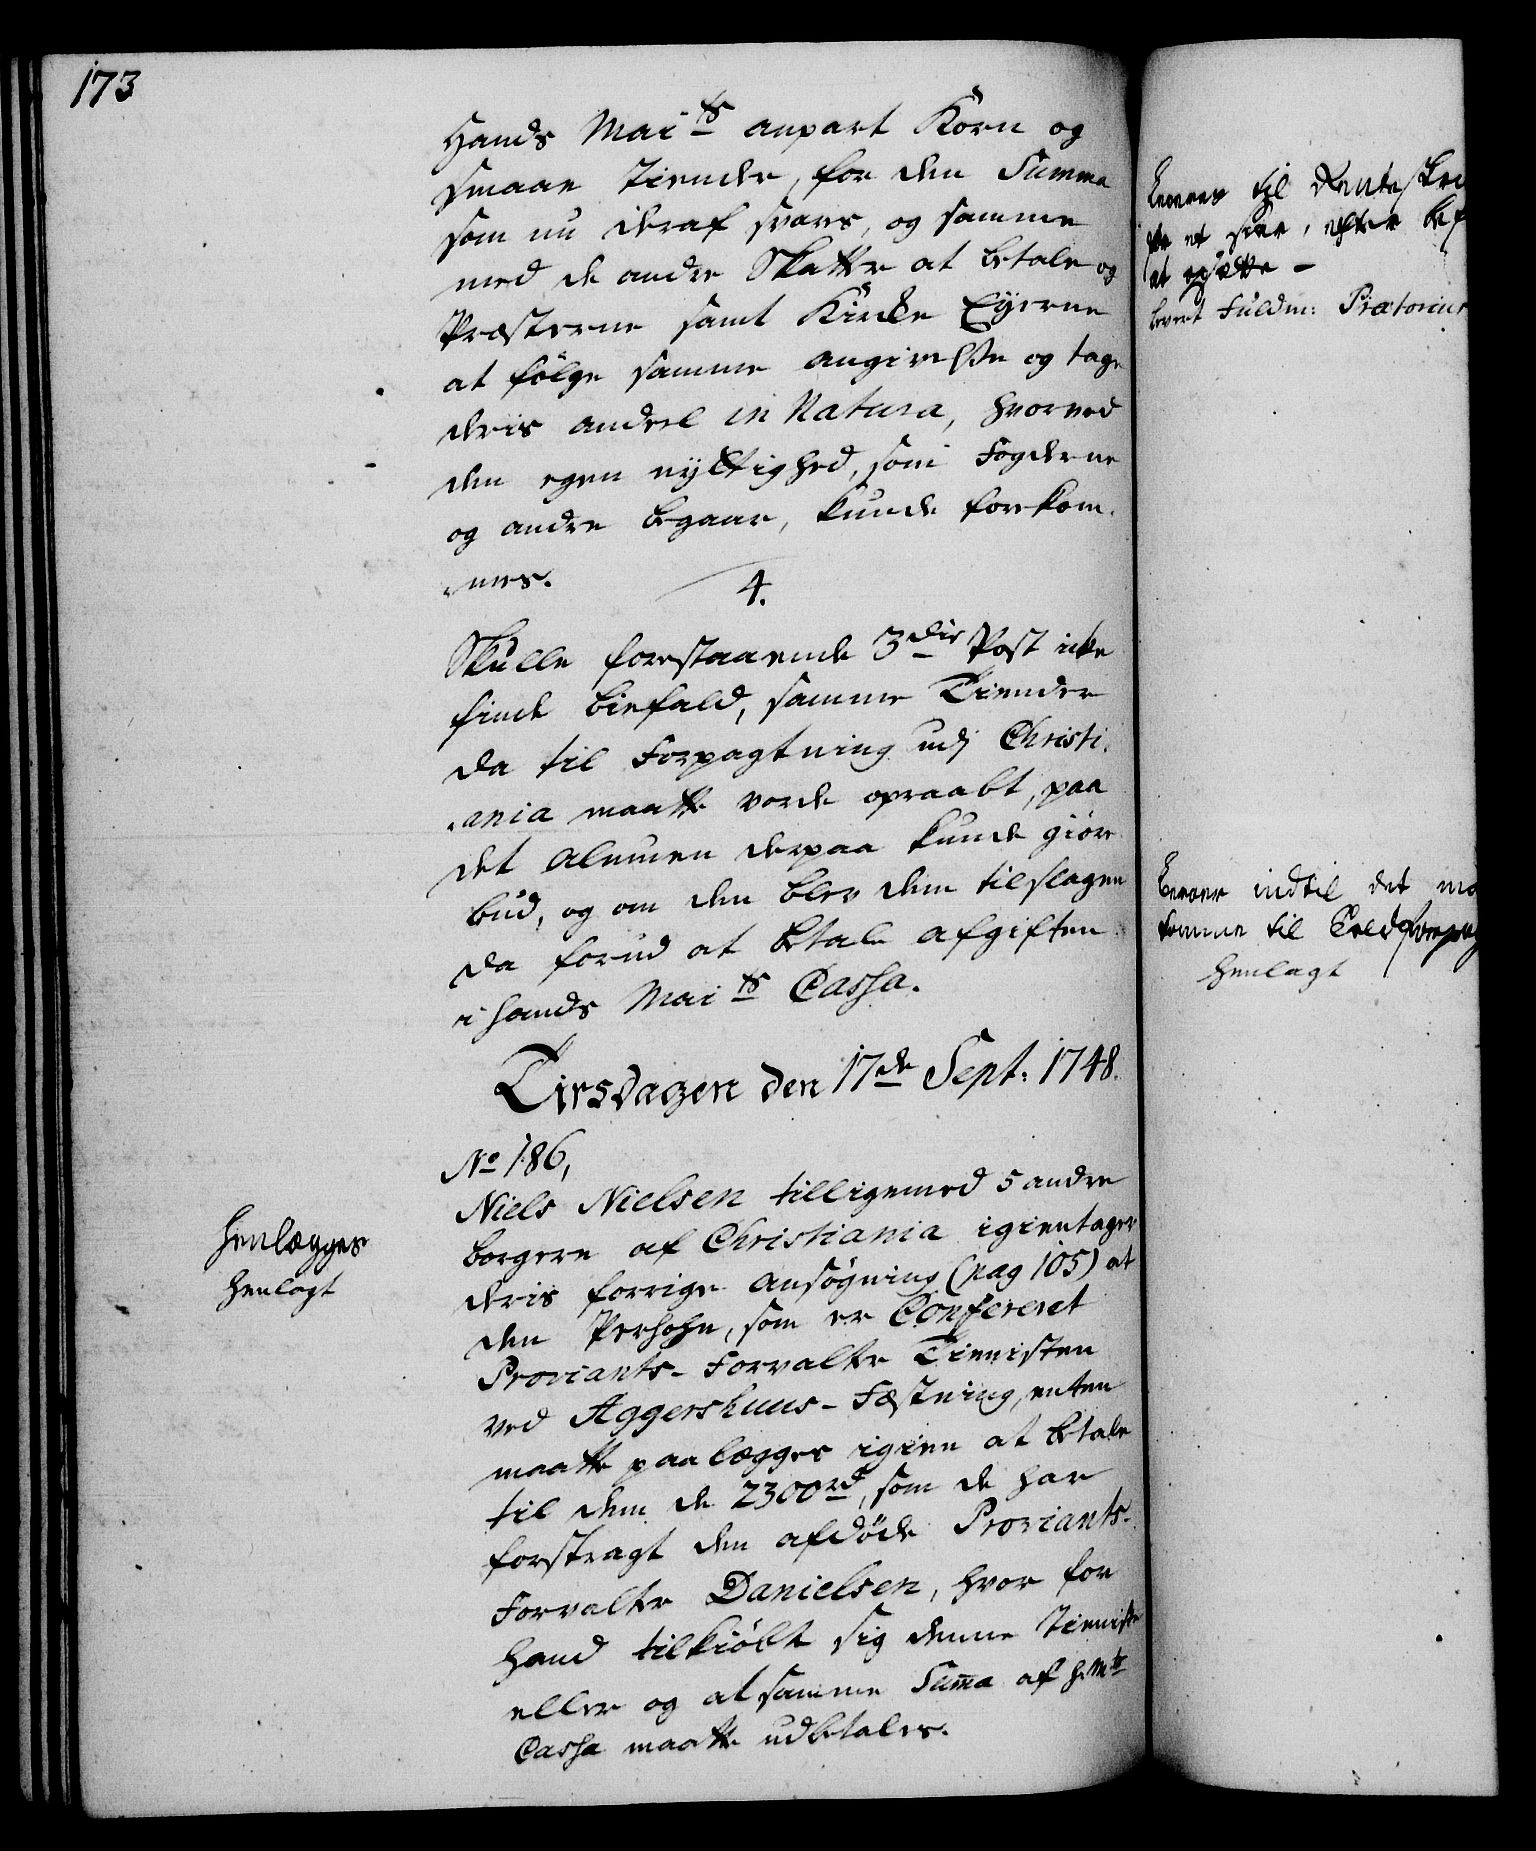 173
Hands Mai<sup>ts</sup> anpart Korn og
smaae Tiender, for den Summa
som nu deraf svares, og samme
med de andre Skatter at betale og
Præsterne samt Kirke Eyerne
at følge samme angivelse og tage
deris andeel in Natura, hvorved
den egen nyttighed, som Fogderne
og andre begaar, kunde forekom-
mes.
4.
Skulle forestaaende 3<sup>die</sup> Post icke
finde biefald, samme Tiender
da til Forpagtning udj Christi-
ania maatte vorde opraabt, paa
det Almuen derpaa kunde giøre
bud, og om den blev dem tilslagen
da forud at betale afgiften
i Hands Mai<sup>ts</sup> Cassa.
Tirsdagen den 17<sup>de</sup> Sept: 1748.
No 186,
Niels Nielsen tilligemed 5 andre
borgere af Christiania igientager
deris forrige ansøgning (pag 105) at
den Persohn, som er Confereret
Proviants-Forvalter Tienisten
ved Aggershuus-Fæstning, enten
maatte paalægges igien at betale
til dem de 2300<sup>rd</sup>, som de har
forstragt den afdøde Proviants-
Forvalter Danielsen, hvor for
hand tilkiøbte sig denne Tieniste
eller og at samme Summa af H. M<sup>ts</sup>
Cassa maatte udbetales.
Henlægges
Henlagt
Leveres til Rentesskr
at
levert Fuldm: Prætorius
Beroer indtil det
komme til
Henlagt